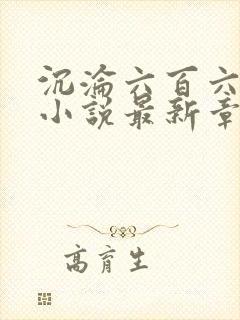 沉淪六百六
小說最新章
高育生